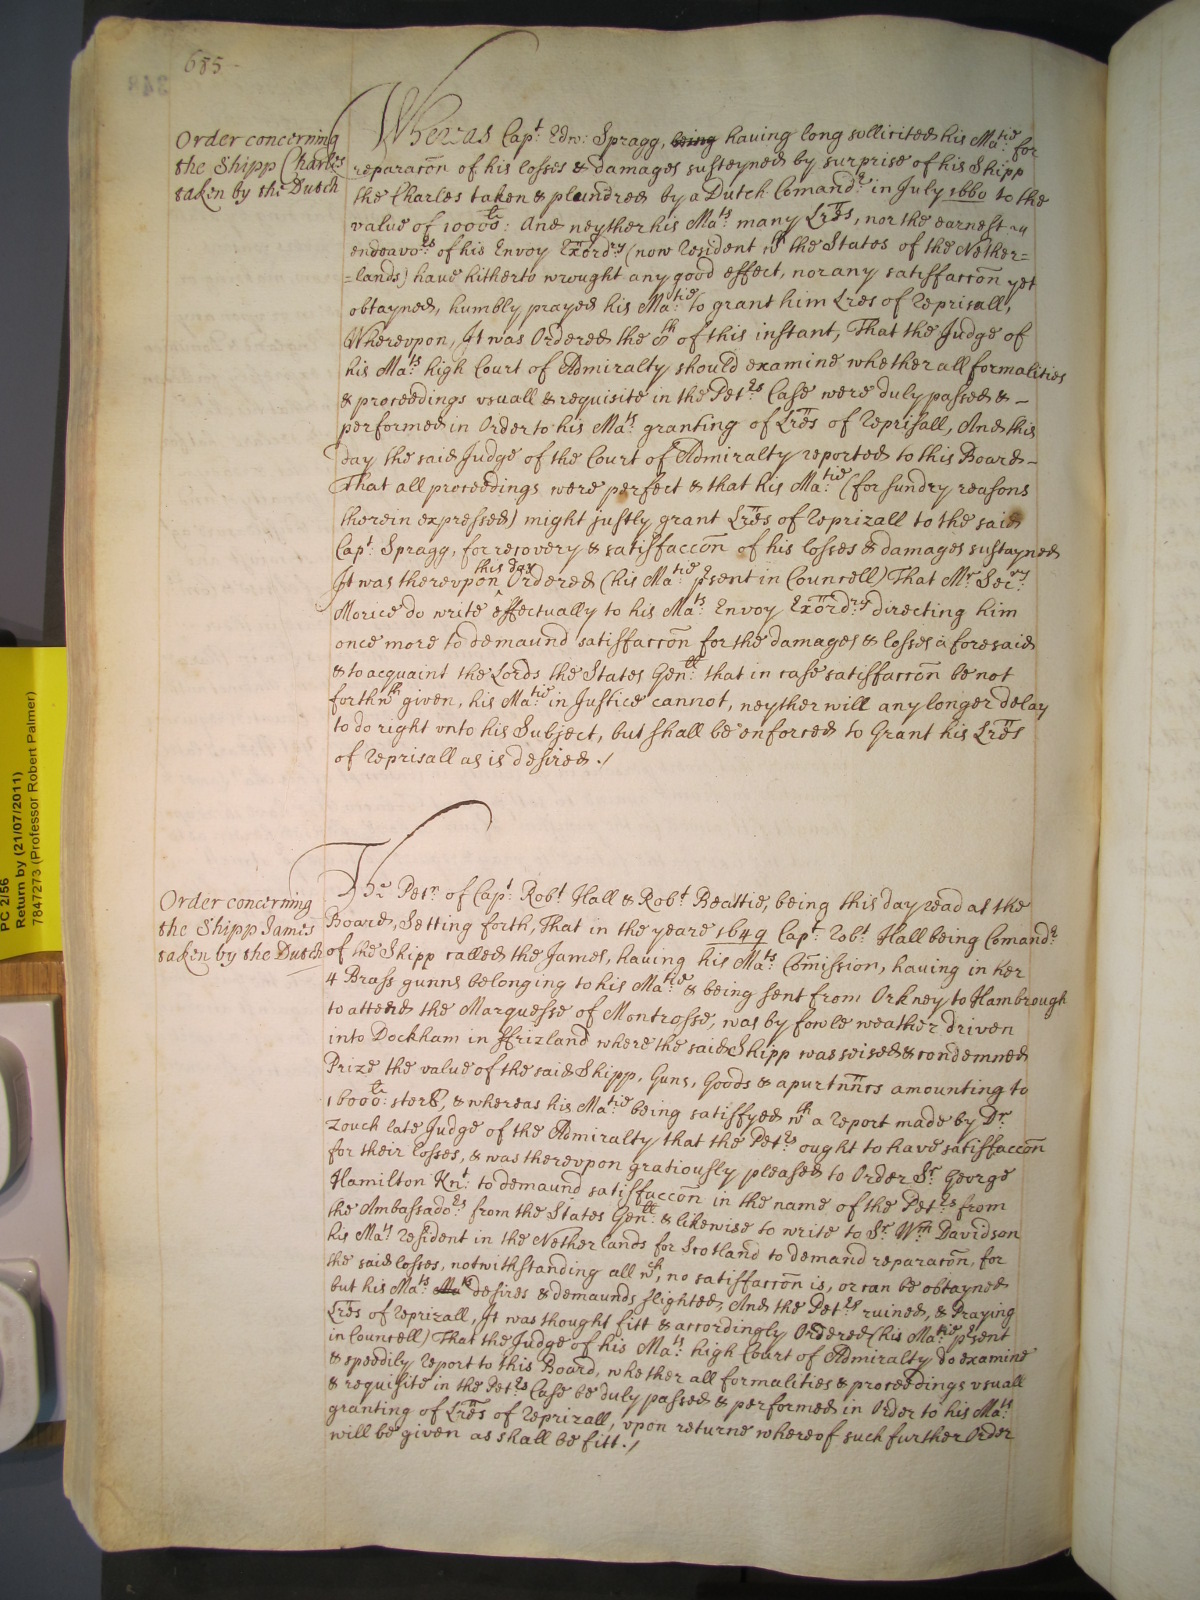 685
Order concerning
the Shipp Charles
taken by the Dutch
Whereas Capt Edw: Spragg, being having long sollicited his Matie for
reparacōn of his losses & damages susteyned by surprise of his Shipp
the Charles taken & plundred by a Dutch Comandr in July 1660 to the
value of 10000li: And neyther his Mats many Lr̄es, nor the earnest
endeavors of his Envoy Exōrdry (now Resident wth the States of the Nether=
=lands) have hitherto wrought any good effect, nor any satisfaccōn yet
obtayned, humbly prayed his Matie to grant him Lr̄es of Reprisall,
Wherevpon, It was Ordered the 8th of this instant, That the Judge of
his Mats high Court of Admiralty should examine whether all formalities
& proceedings vsuall & requisite in the Petrs Case were duly passed & -
performed in Order to his Mats granting of Lr̄es of Reprisall, And this
day the said Judge of the Court of Admiralty reported to this Board -
That all proceedings were perfect & that his Matie (for sundry reasons
therein expressed) might justly grant Lr̄es of Reprizall to the said
Capt: Spragg, for recovery & satisfaccōn of his losses & damages sustayned
It was therevpon this day Ordered (his Matie p̄sent in Councell) That Mr Secry
Morice do write effectually to his Mats Envoy Exōrdry directing him
once more to demaund satisfaccōn for the damages & losses aforesaid
& to acquaint the Lords the States Genll that in case satisfaccōn be not
forthwth given, his Matie in Justice cannot, neyther will any longer delay
to do right vnto his Subject, but shall be enforced to Grant his Lr̄es
of Reprisall as is desired ./
Order concerning
the Shipp James
taken by the Dutch
The Petn of Capt Robt Hall & Robt Beattie, being this day read at the
Board, Setting forth, That in the yeare 1649 Capt: Robt Hall being Comandr
of the Shipp called the James, having his Mats Com̄ission, having in her
4 Brass gunns belonging to his Matie & being sent from Orkney to Hambrough
to attend the Marquesse of Montrosse, was by fowle weather driven
into Dockham in ffrizland where the said Shipp was seised & condemned
Prize the value of the said Shipp, Guns, Goods & apurtn̄ncs amounting to
16000li: sterl, & whereas his Matie being satisfyed wth a Report made by Dr
Zouch late Judge of the Admiralty that the Petrs ought to have satisfaccōn
for their losses, & was therevpon gratiously pleased to Order Sr George
Hamilton Knt: to demaund satisfaccōn in the name of the Petrs from
the Ambassadors from the States Genll & likewise to write to Sr Wm Davidson
his Mats Resident in the Netherlands for Scotland to demand reparacōn, for
the said losses, notwithstanding all wch, no satisfaccōn is, or can be obtayned
but his Mats Mats desires & demaunds slighted, And the Petrs ruined, & Praying
Lr̄es of Reprizall, It was thought fitt & accordingly Ordered (his Matie p̄sent
in Councell) That the Judge of his Mats high Court of Admiralty do examine
& speedily Report to this Board, whether all formalities & proceedings vsuall
& requisite in the Petrs Case be duly passed & performed in Order to his Mats
granting of Lr̄es of Reprizall, vpon returne whereof such further Order
will be given as shall be fitt./
PC 2/56
Return by (21/07/2011)
7847273 (Professor Robert Palmer)